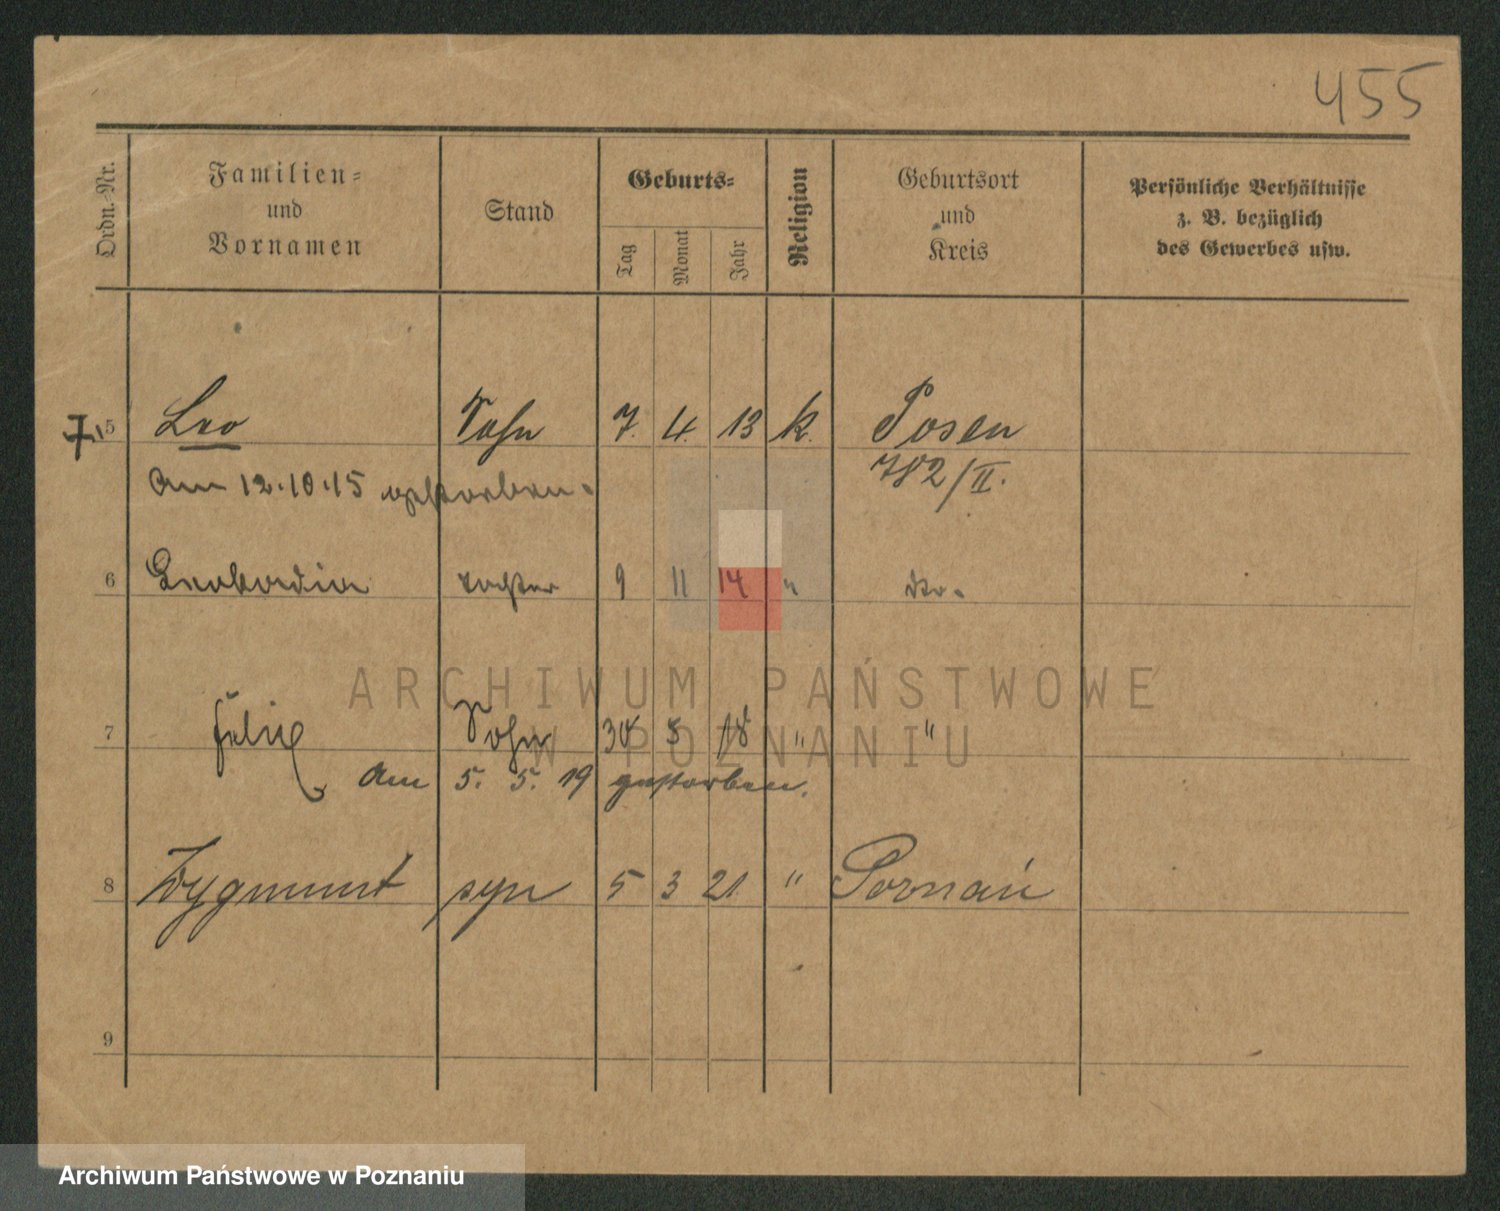 455
Ordn.-Nr. Familien- und Vornamen Stand Geburts- Tag Monat Jahr Religion Geburtsort und Kreis Persönliche Verhältnisse z. B. bezüglich des Gewerbes usw.
5 Leo Sohn 7. 4. 13 k. Posen
am 12.10.15 gestorben. 782/II.
6 Tochter 9 11 14 " do.
ARCHIWUM PAŃSTWOWE
W POZNANIU
7 Felix Sohn 30 8 18 " "
am 5. 5. 19 gestorben.
8 Zygmunt syn 5 3 21 " Poznań
9
Archiwum Państwowe w Poznaniu